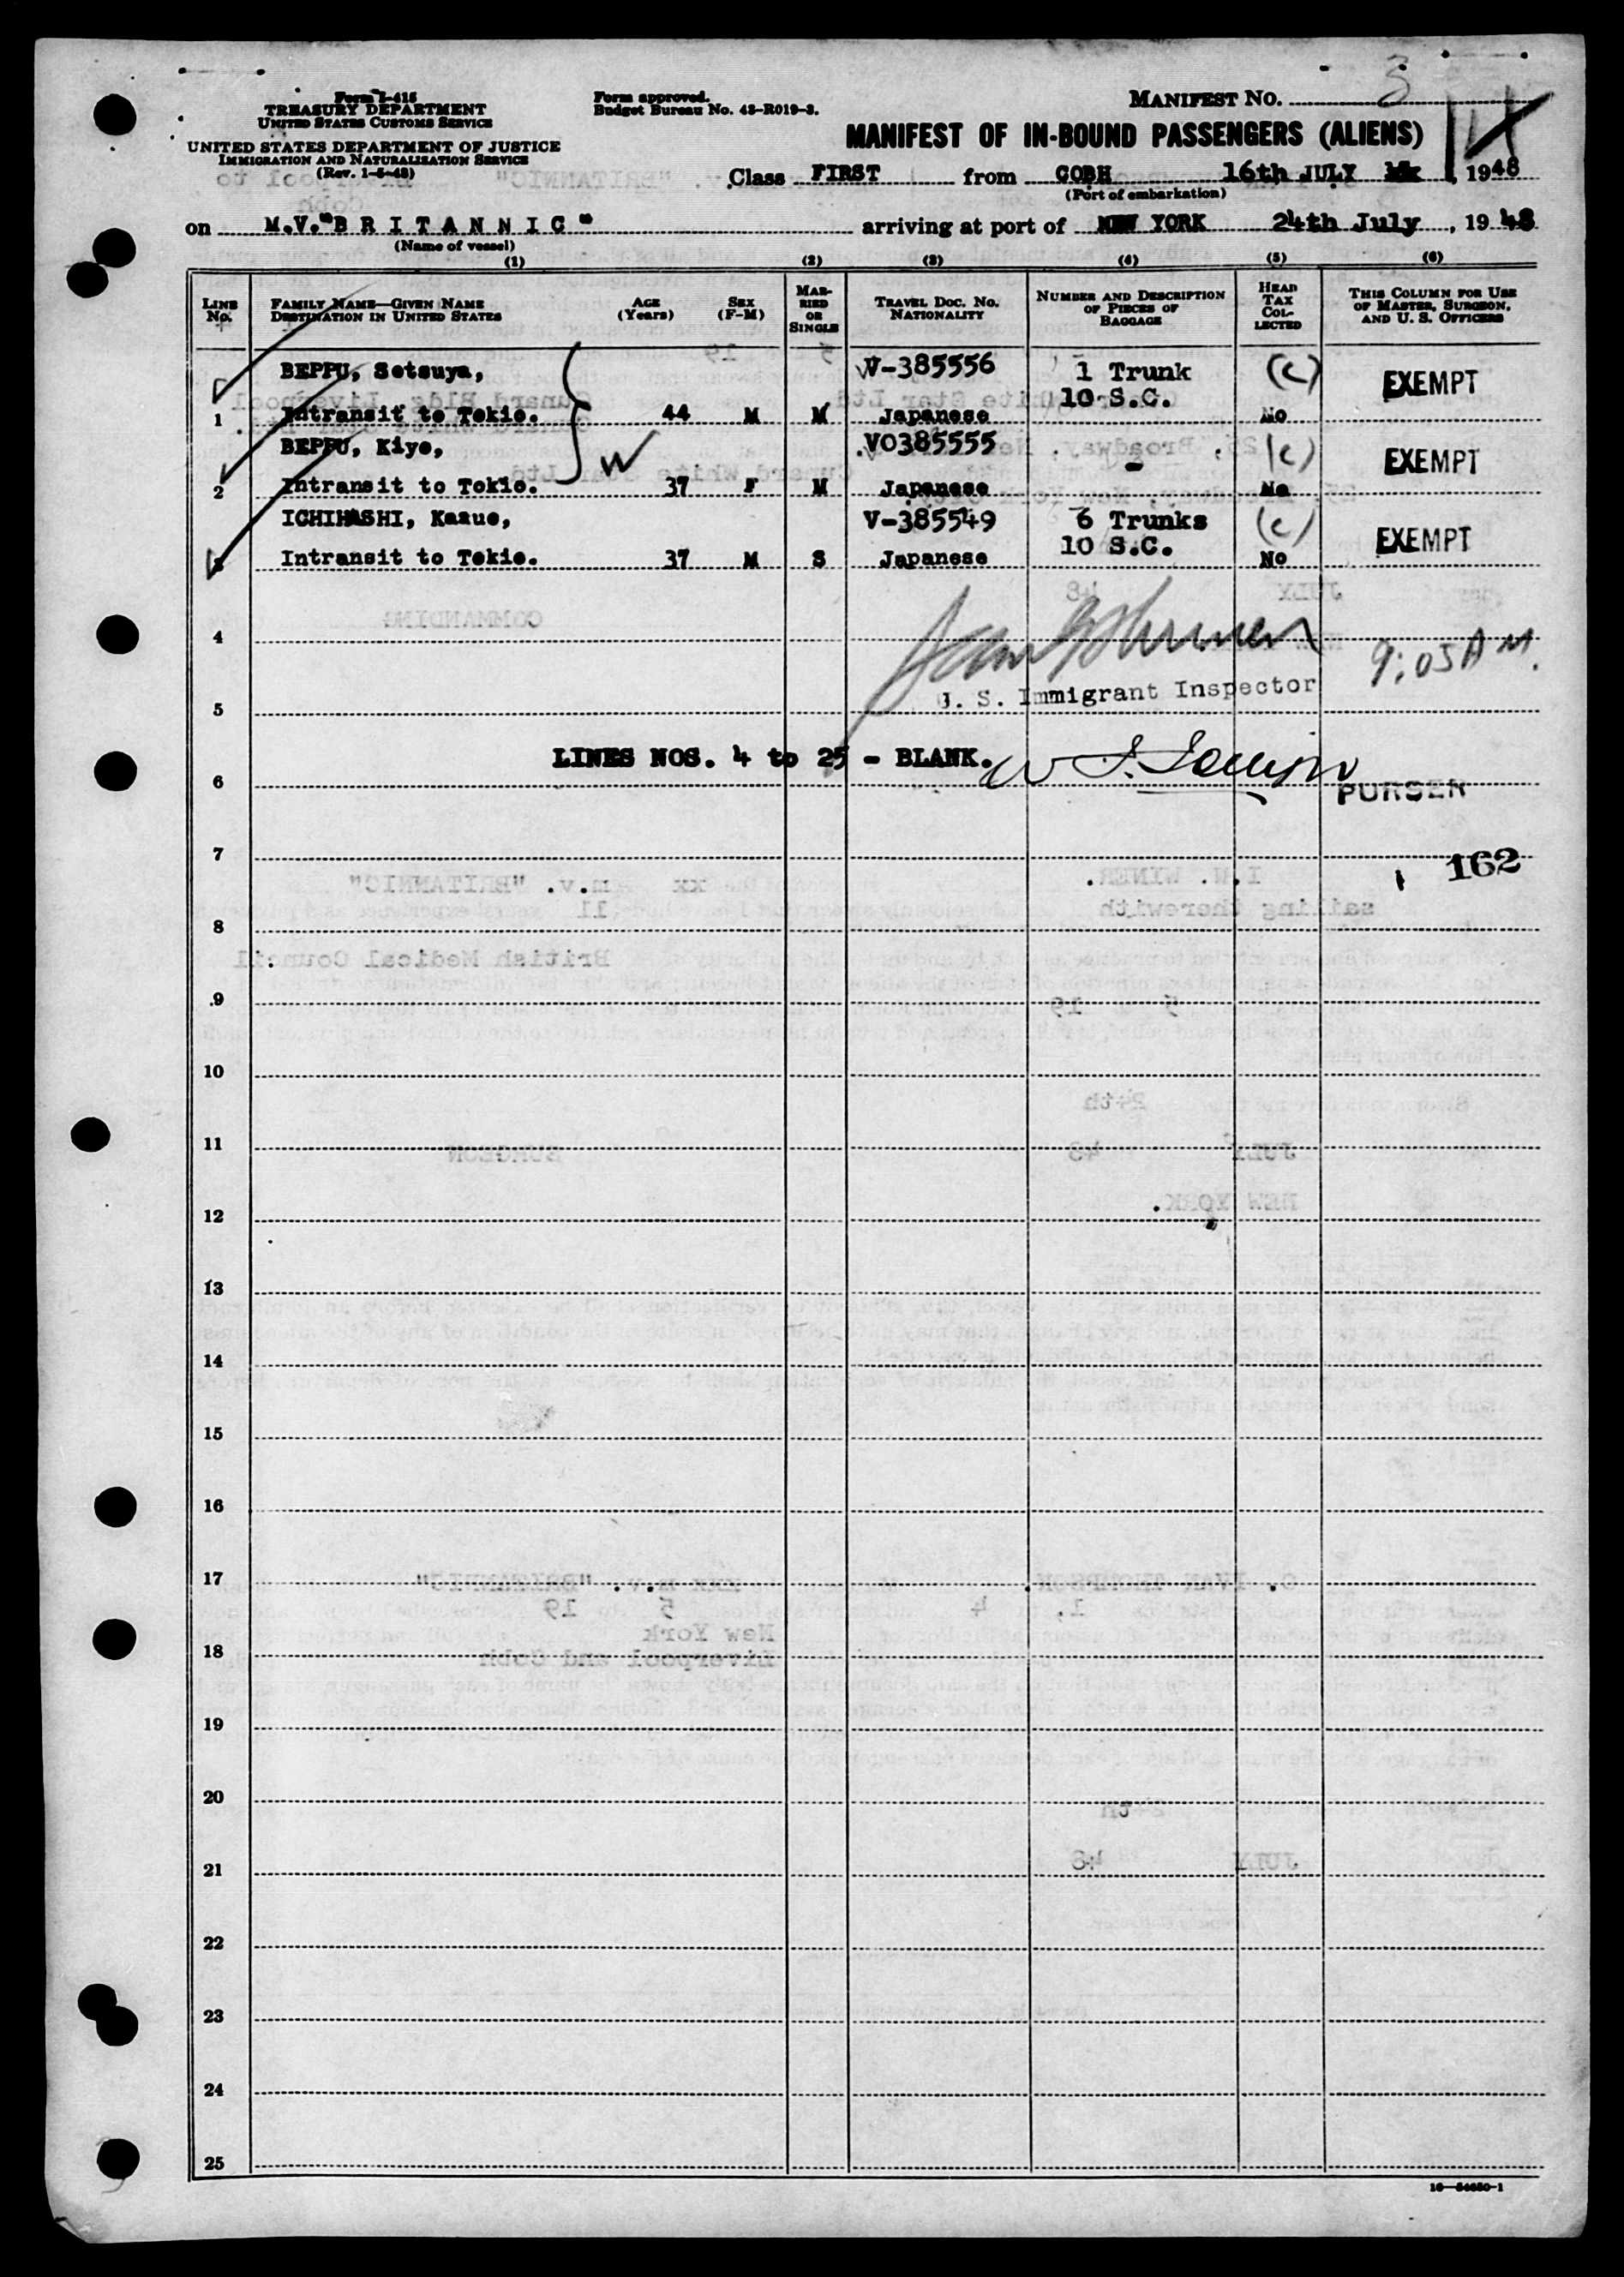 Form I-415
TREASURY DEPARTMENT
UNITED STATES CUSTOMS SERVICE
UNITED STATES DEPARTMENT OF JUSTICE
IMMIGRATION AND NATURALIZATION SERVICE
(Rev. 1-5-48)
Form approved.
Budget Bureau No. 43-R019-3.
MANIFEST NO. 3
14
MANIFEST OF IN-BOUND PASSENGERS (ALIENS)
Class FIRST from COBH 16th JULY, 1948
(Port of embarkation)
on M.V."BRITANNIC" arriving at port of NEW YORK 24th July, 1948
(Name of vessel)
(1) (2) (3) (4) (5) (6)
LINE No. FAMILY NAME—GIVEN NAME DESTINATION IN UNITED STATES AGE (Years) SEX (F-M) MARRIED OR SINGLE TRAVEL DOC. NO. NATIONALITY NUMBER AND DESCRIPTION OF PIECES OF BAGGAGE HEAD TAX COLLECTED THIS COLUMN FOR USE OF MASTER, SURGEON, AND U. S. OFFICERS
BEPPU, Setsuya, V-385556 1 Trunk (c) EXEMPT
1 Intransit to Tokio. 44 M M Japanese 10 S.C. No
BEPPU, Kiyo, VO385555 - (c) EXEMPT
W
2 Intransit to Tokio. 37 F M Japanese No
ICHIHASHI, Kazue, V-385549 6 Trunks (c) EXEMPT
3 Intransit to Tokio. 37 M S Japanese 10 S.C. No
4
9:05 AM.
U. S. Immigrant Inspector
5
LINES NOS. 4 to 25 - BLANK.
6
PURSER
7
162
8
9
10
11
12
13
14
15
16
17
18
19
20
21
22
23
24
25
16—54650-1